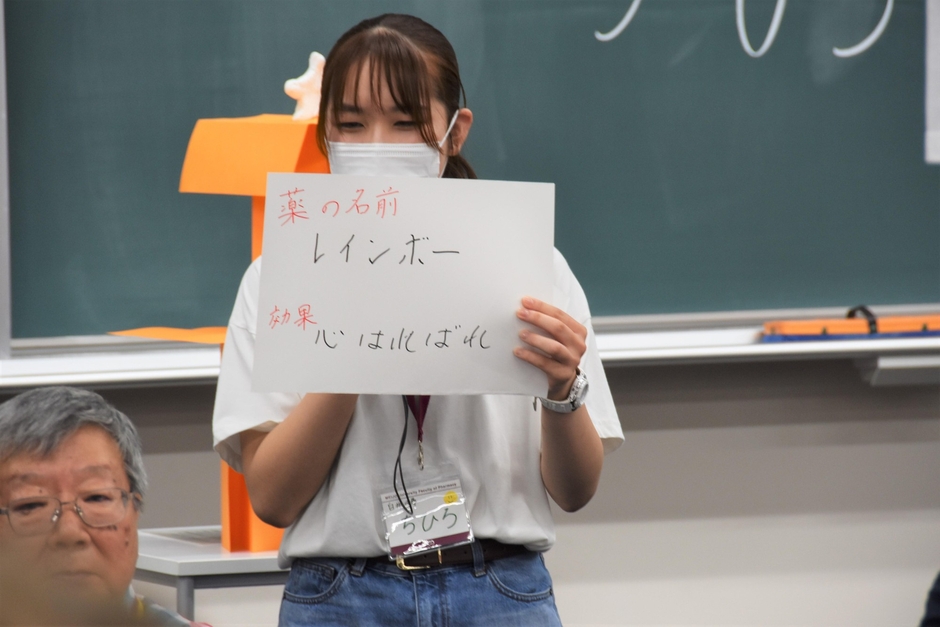 薬の名前
レインボー
効果
心はればれ
Faculty of Pharmacy
ちひろ